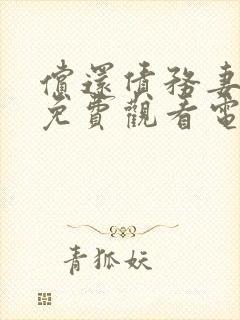 償還債務妻
免費觀看電
青狐妖